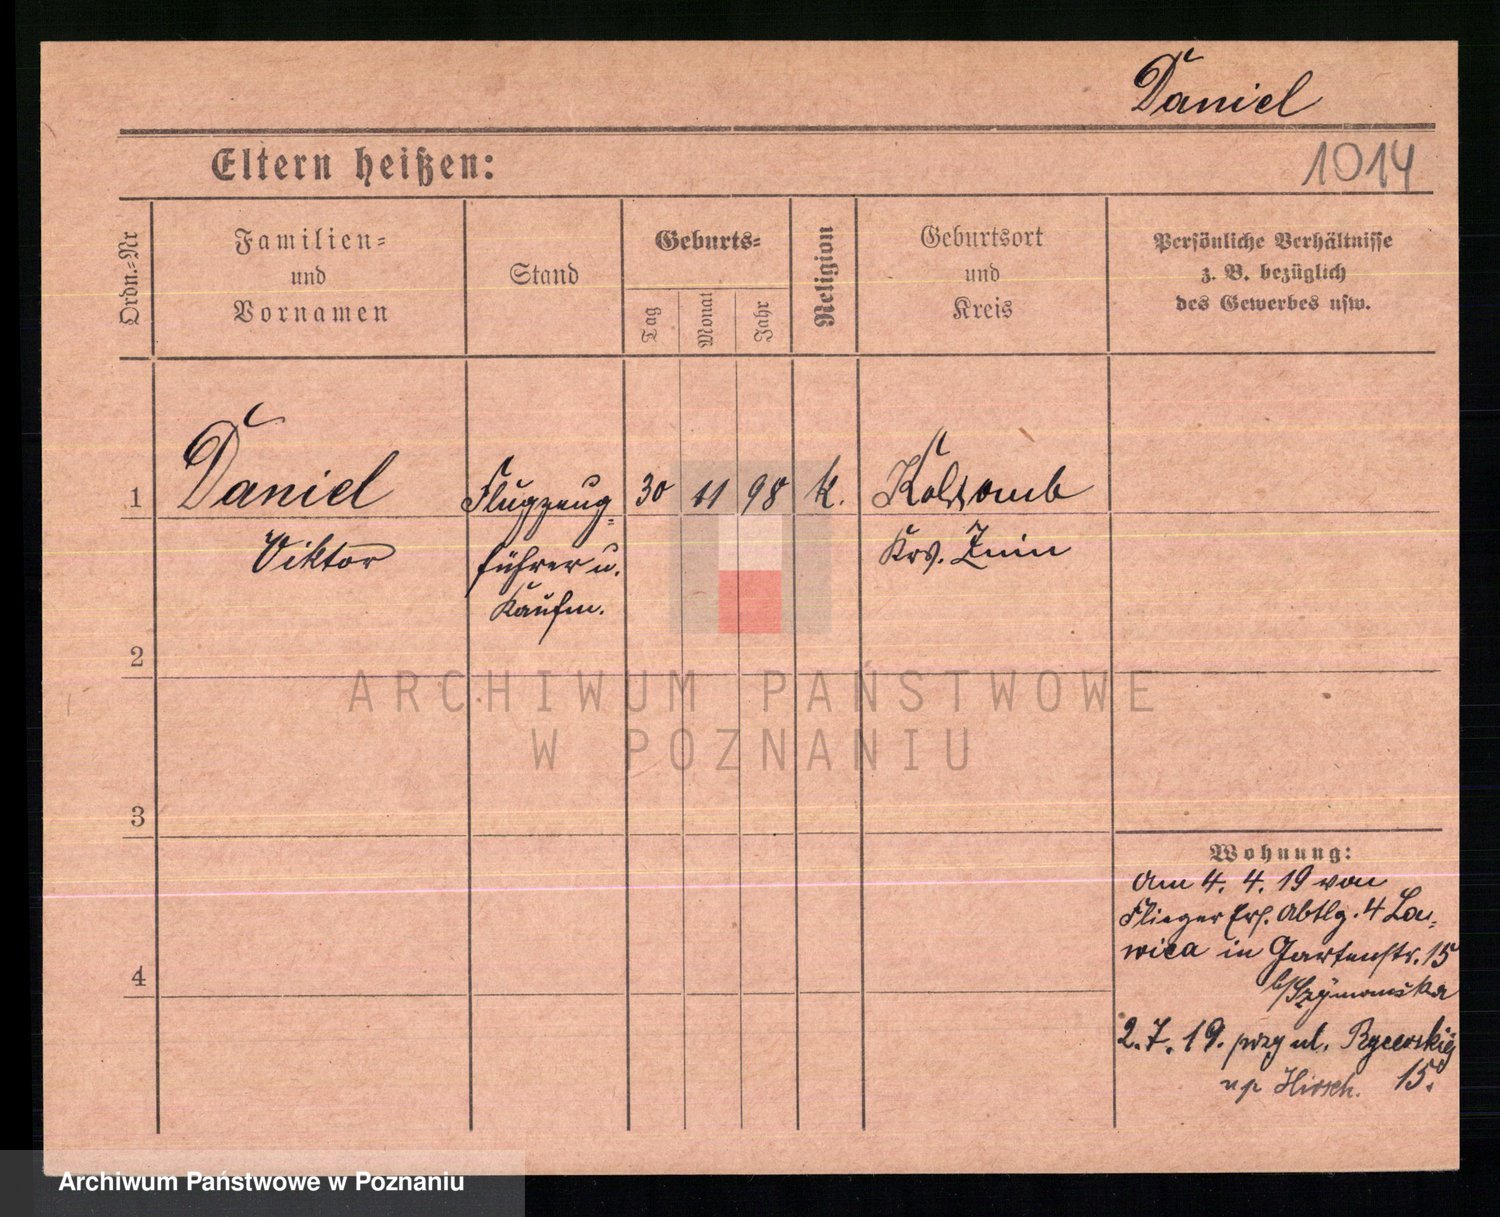 Daniel
Eltern heißen:
1014
Ordn.-Nr
Familien-
und
Vornamen
Stand
Geburts-
Tag
Monat
Jahr
Religion
Geburtsort
und
Kreis
Persönliche Verhältnisse
z. B. bezüglich
des Gewerbes usw.
1
Daniel
Viktor
Flugzeug-
führer u.
Kaufm.
30
11
98
k.
Krs. Znin
2
3
4
Wohnung:
Am 4. 4. 19 von
Flieger Ers. Abtlg. 4 La-
wica in Gartenstr. 15
b/Szymanska
2.7.19. przy ul. Rycerskiej
u p Hirsch. 15.
ARCHIWUM PAŃSTWOWE
W POZNANIU
Archiwum Państwowe w Poznaniu